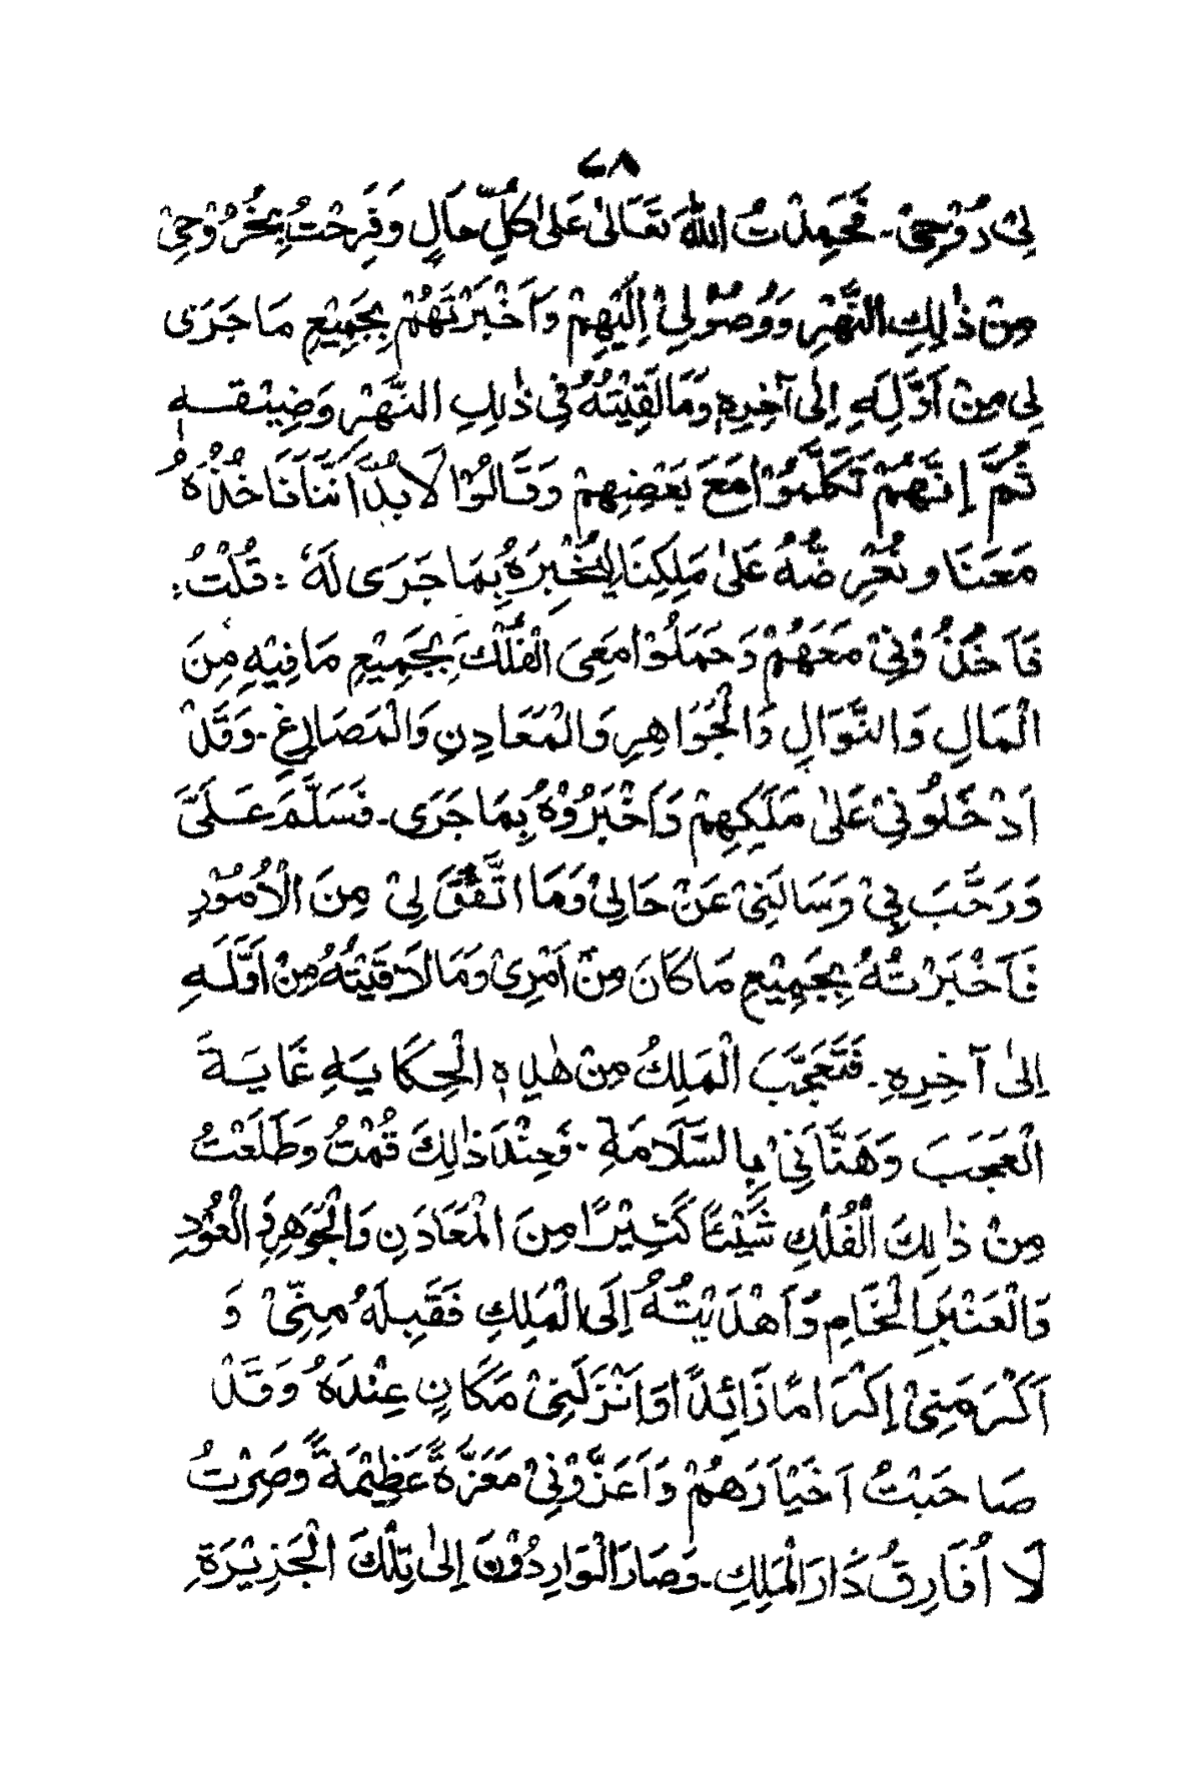 ٦٨
لِیْ رُوْحِیْ۔ فَحَمِدْتُ اللّٰهَ تَعَالیٰ عَلیٰ کُلِّ حَالٍ وَفَرِحْتُ بِخُرُوْجِیْ
مِنْ ذٰلِكِ النَّهْرِ وَوُصُوْلِیْ اِلَیْهِمْ وَاَخْبَرْتَهُمْ بِجَمِیْعِ مَا جَرَی
لِی مِنْ اَوَّلِهِ اِلٰی آخِرِهِ وَمَا لَقِیْتُهُ فِیْ ذٰلِكِ النَّهْرِ وَضِیْقِهِ
ثُمَّ اِنَّهُمْ تَکَلَّمُوْا مَعَ بَعْضِهِمْ وَقَالُوْا لَا بُدَّ اَنَّنَا نَاخُذُهُ
مَعَنَا وَنُعْرِضُهُ عَلیٰ مَلِکِنَا لِیُخْبِرَهُ بِمَا جَرَی لَهُ : قُلْتُ :
فَاَخَذُوْنِیْ مَعَهُمْ وَحَمَلُوْا مَعِیَ الْفُلْكَ بِجَمِیْعِ مَا فِیْهِ مِنَ
الْمَالِ وَالنَّوَالِ وَالْجَوَاهِرِ وَالْمَعَادِنِ وَالْمَصَارِغِ۔ وَقَدْ
اَدْخَلُوْنِیْ عَلیٰ مَلِکِهِمْ وَاَخْبَرُوْهُ بِمَا جَرَی۔ فَسَلَّمَ عَلَیَّ
وَرَحَّبَ بِیْ وَسَالَنِیْ عَنْ حَالِیْ وَمَا اتَّفَقَ لِیْ مِنَ الْاُمُوْرِ
فَاَخْبَرْتُهُ بِجَمِیْعِ مَا کَانَ مِنْ اَمْرِیْ وَمَا لَاقَیْتُهُ مِنْ اَوَّلِهِ
اِلیٰ آخِرِهِ۔ فَتَعَجَّبَ الْمَلِكُ مِنْ هٰذِهِ الْحِکَایَةِ غَایَةَ
الْعَجَبَ وَهَنَّانِیْ بِالسَّلَامَةِ۔ فَعِنْدَ ذٰلِكَ قُمْتُ وَطَلَعْتُ
مِنْ ذٰلِكَ الْفُلْكِ شَیْئًا کَثِیْرًا مِنَ الْمَعَادَنِ وَالْجَوَهِرِ وَ الْعُوْدِ
وَالْعَنْبَرِ الْخَامِ وَاَهْدَیْتُهُ اِلَی الْمَلِكِ فَقَبِلَهُ مِنِّیْ وَ
اَکْرَمَنِیْ اِکْرَامًا زَائِدًا وَاَنْزَلَنِیْ مَکَانٍ عِنْدَهُ وَقَدْ
صَاحَبْتُ اَخْیَارَهُمْ وَاَعَزُّوْنِیْ مَعَزَّةً عَظِیْمَةً وَصِرْتُ
لَا اُفَارِقُ دَارَ الْمَلِكِ۔ وَصَارَ الْوَارِدُوْنَ اِلیٰ تِلْكَ الْجَذِیْرَةِ